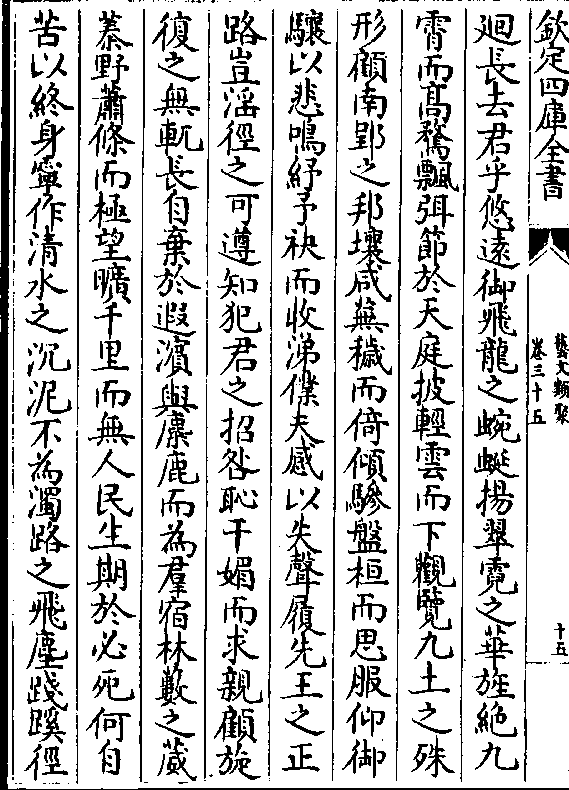 欽定四庫全書
藝文類聚
卷三十五
十五
廻長去君乎悠遠御飛龍之蜿蜒揚翠霓之華旌絶九
霄而髙鶩飄弭節於天庭披輕雲而下觀覽九土之殊
形顧南郢之邦壤咸蕪穢而倚傾驂盤桓而思服仰御
驤以悲鳴紓予袂而收涕僕夫感以失聲履先王之正
路豈淫徑之可遵知犯君之招咎恥干媚而求親顧旋
復之無軏長自棄於遐濱與麋鹿而為羣宿林藪之葳
蓁野蕭條而極望曠千里而無人民生期於必死何自
苦以終身寧作清水之沉泥不為濁路之飛塵踐蹊徑